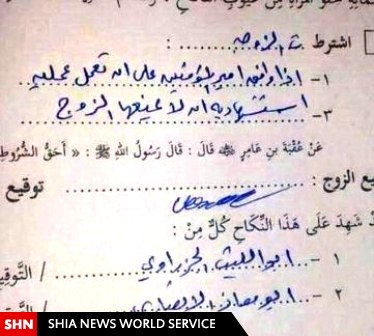 اشترط ت الزوجه
١- إذا وافق امير المؤمنين على ان تعمل عملية
٢- استشهاديه ان لا يمنعها الزوج
عَنْ عُقْبَةَ بْنِ عامِرٍ ﷺ قَالَ : قَالَ رَسُولُ اللهِ ﷺ : « أَحَقُّ الشُّرُوطِ
يع الزوج : توقيع
دْ شَهِدَ عَلَى هَذَا النِّكَاحِ كُلٌّ مِنْ :
١ - ابو الليث الجزراوي / التَّوقِيـ
٢ - ابو معاذ الانصاري
SHN SHIA NEWS WORLD SERVICE